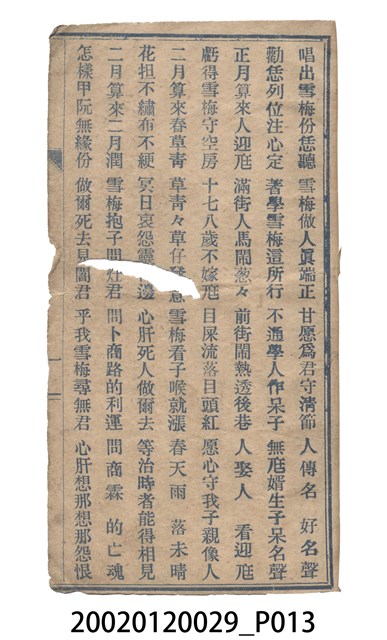 唱出雪梅份恁聽 雪梅做人眞端正 甘愿爲君守清節 人傳名好名聲
勸恁列位注心定 著學雪梅這所行 不通學人作呆子 無尫婿生子呆名聲
正月算來人迎尫 滿街人馬鬧葱々 前街鬧熱透後巷 人娶人看迎尫
虧得雪梅守空房 十七八歲不嫁尫 目屎流落目頭紅 愿心守我子親像人
二月算來春草青 草青々草仔 意 雪梅看子喉就漲 春天雨落未晴
花担不繡布不緶 冥日哀怨靈 邊 心肝死人做爾去 等治時者能得相見
二月算來二月潤 雪梅抱子問灶君 問卜商路的利運 問商霖的亡魂
怎樣甲阮無緣份 做爾死去見閻君 乎我雪梅尋無君 心肝想那想那怨恨
20020120029_P013